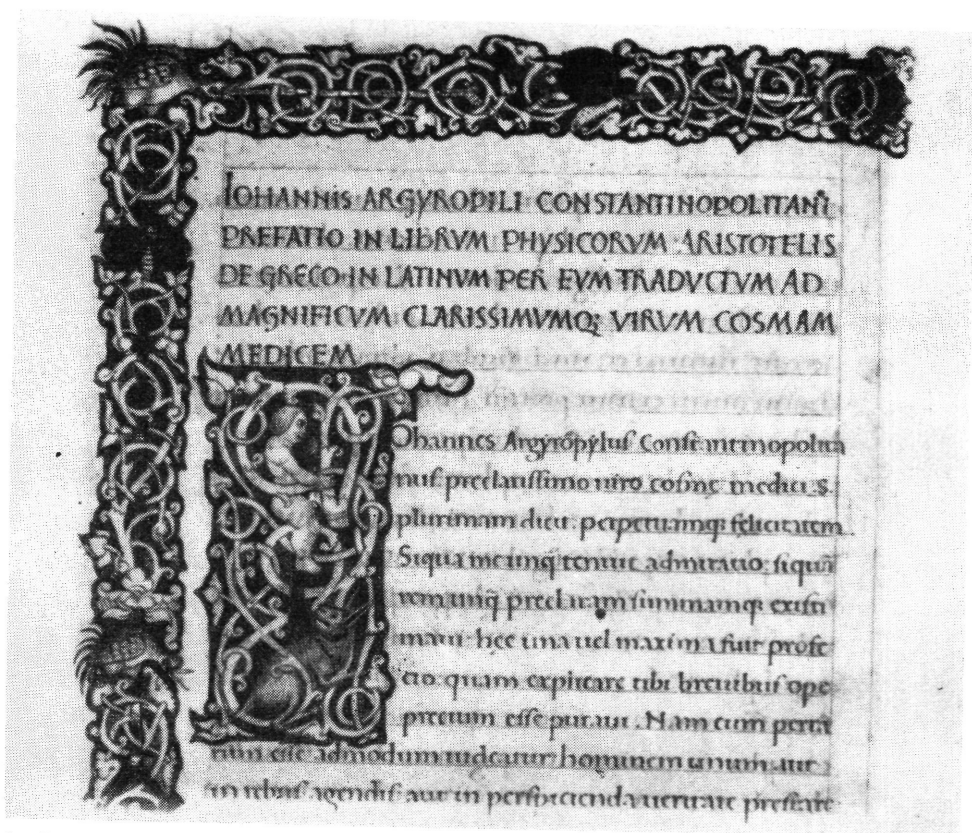 IOHANNIS ARGYROPILI CONSTANTINOPOLITANI
PREFATIO IN LIBRVM PHYSICORVM ARISTOTELIS
DE GRECO IN LATINVM PER EVM TRADVCTVM AD
MAGNIFICVM CLARISSIMVMQ; VIRVM COSMAM
MEDICEM
IOhannes Argyropylus Constantinopolita
nus preclarissimo uiro cosme medici s.
plurimam dicit perpetuamq; felicitatem
Siqua me unq̃ tenuit admiratio: siquã
rem unq̃ preclaram summamq; existi
maui: hec una uel maxima fuit profe
cto. quam explicare tibi breuibus ope
pretium esse putaui. Nam cum
esse admodum uideatur hominem unum aut
in rebus agendis aut in perspicienda ueritate prestare